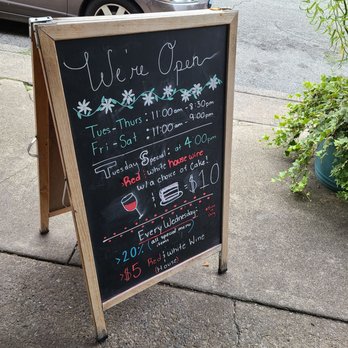 We're Open
Tues-Thurs: 11:00am-8:30pm
Fri-Sat: 11:00am-9:00pm
Tuesday Special: at 4:00pm
Red & white house wine
w/ a choice of Cake!
& = $10
Every Wednesday:
>20% (all special menu
items)
>$5 Red & White Wine
(House)